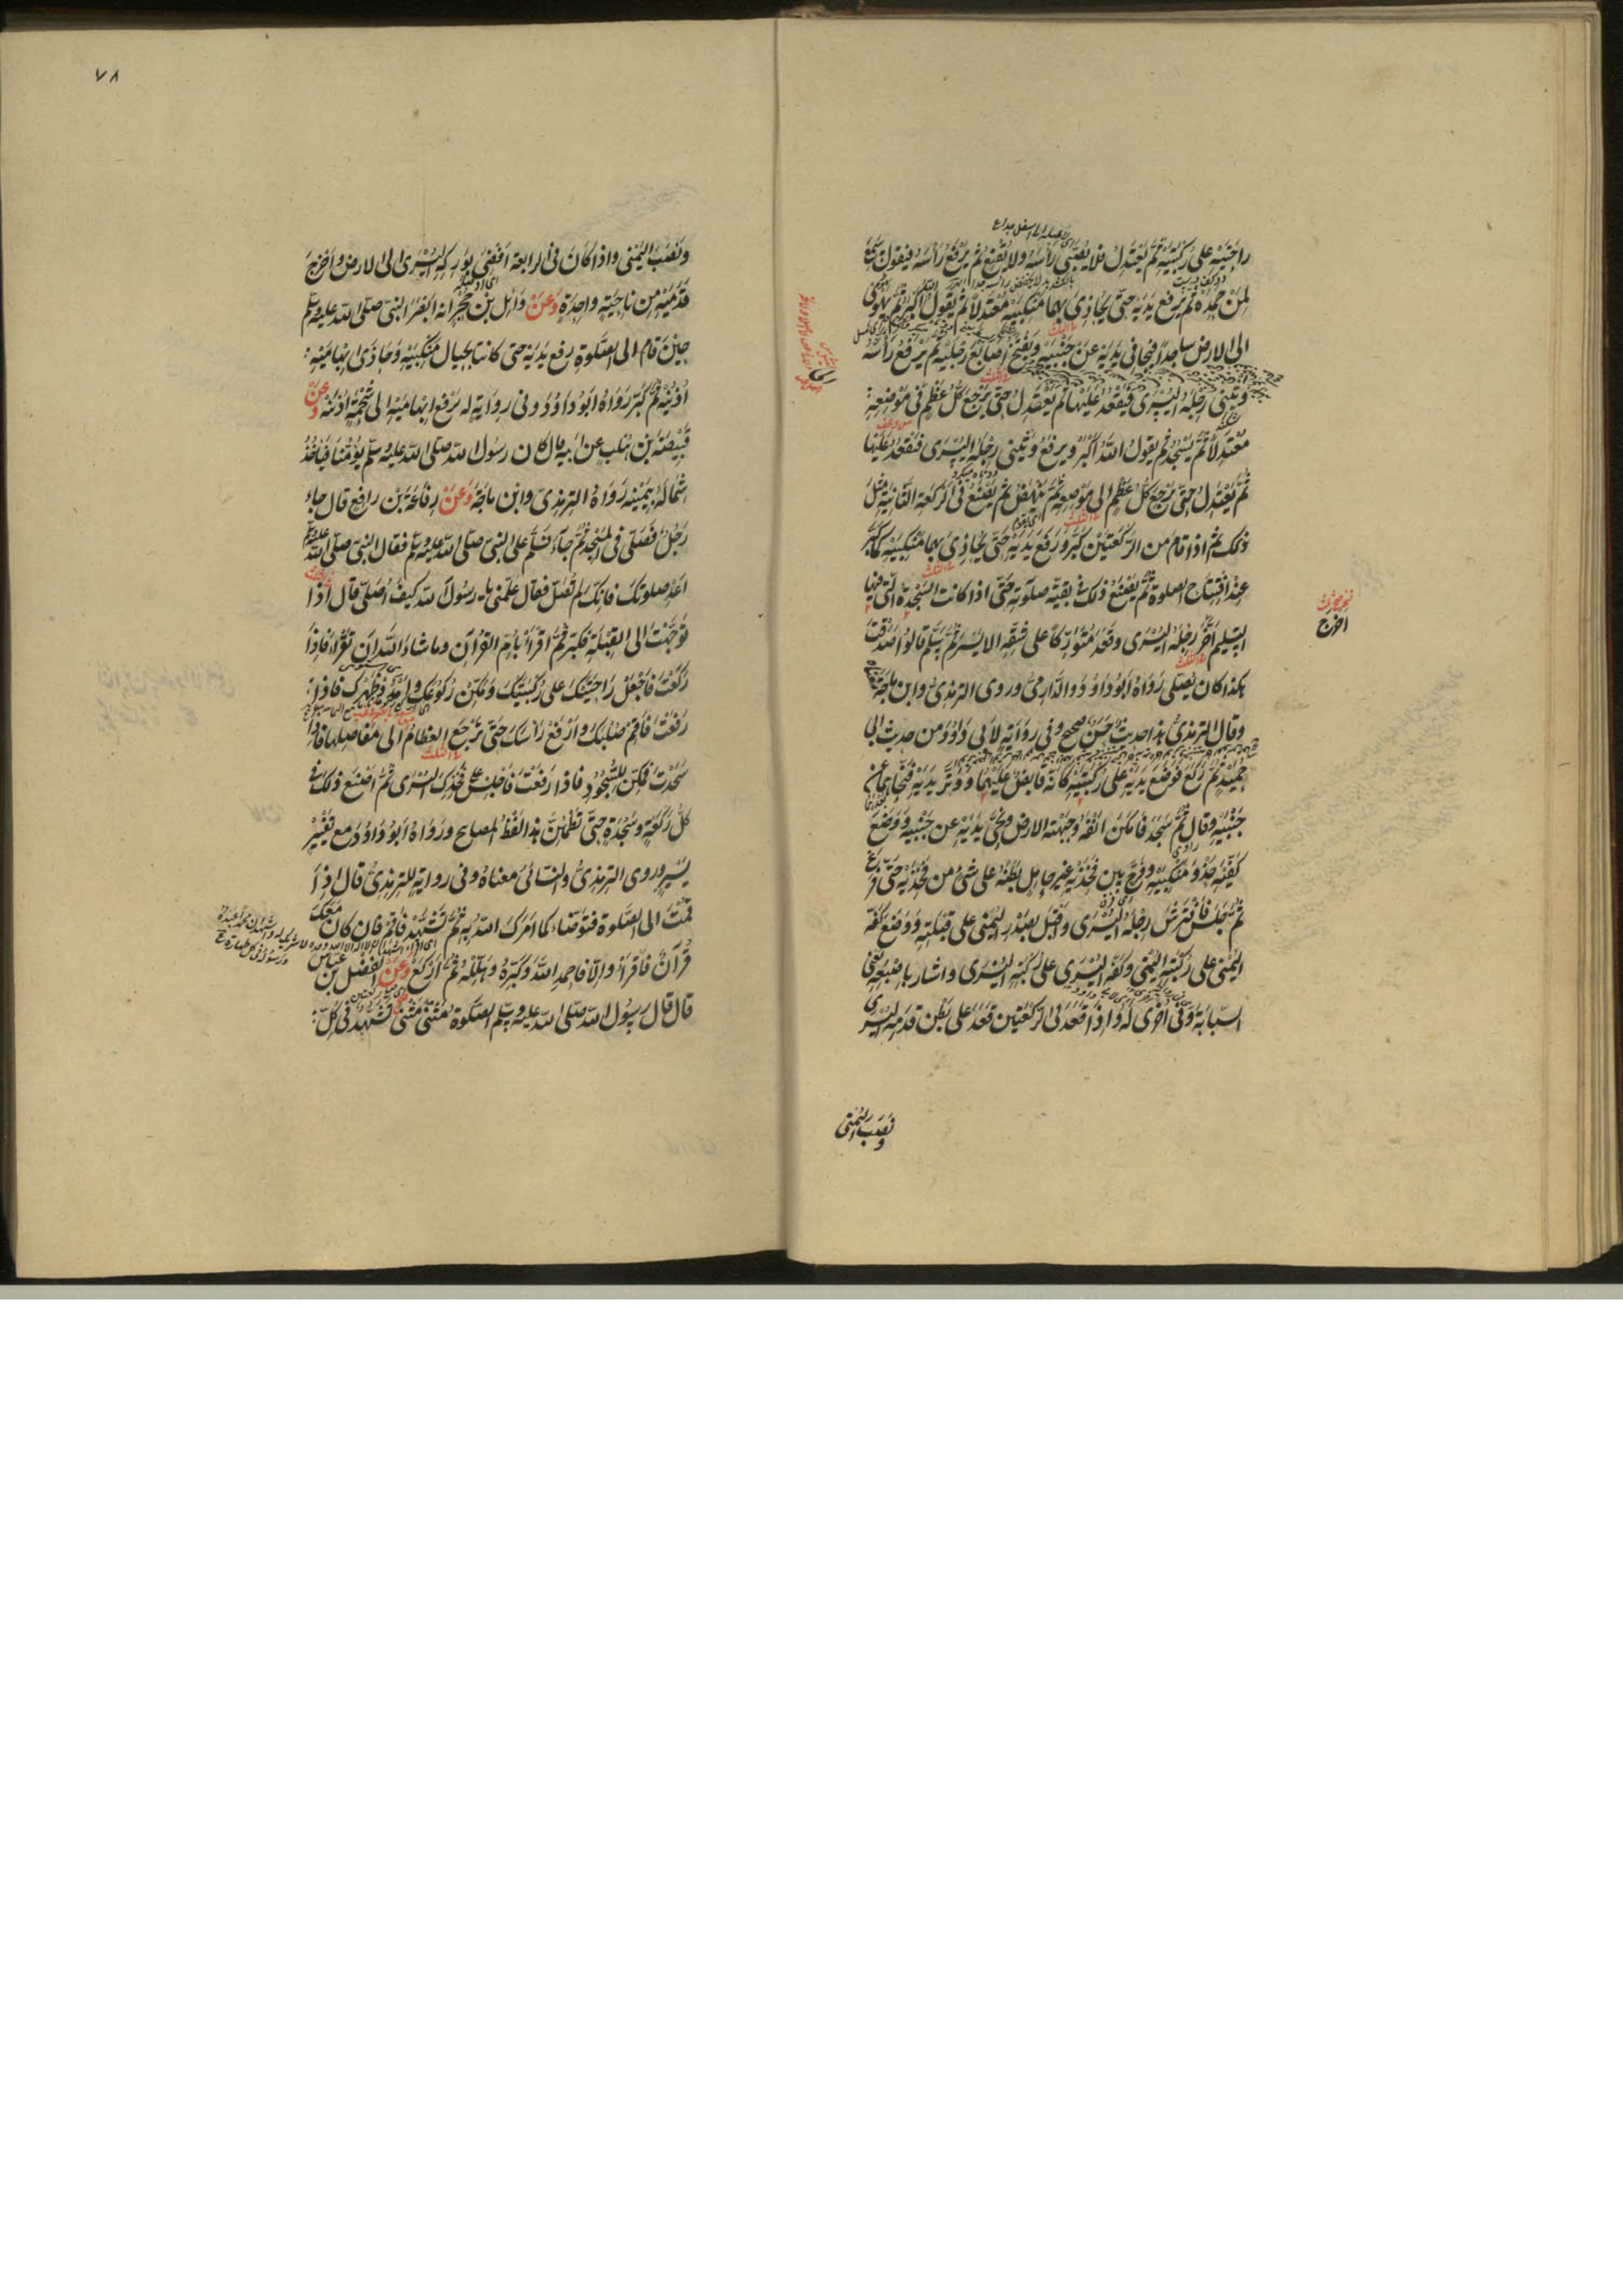 راحتيه على ركبتيه ثم يعتدل فلا يصبي رأسه ولا يقنع ثم يرفع رأسه فيقول سمع
لمن حمده ثم يرفع يديه حتى يحاذي بهما منكبيه معتدلا ثم يقول الله اكبر ثم يهوي
الى الارض ساجدا فيجافي يديه عن جنبيه ويفتخ اصابع رجليه ثم يرفع رأسه
ويثني رجله اليسرى فيقعد عليها ثم يعتدل حتى يرجع كل عظم في موضعه
معتدلا ثم يسجد ثم يقول الله اكبر ويرفع ويثني رجله اليسرى فيقعد عليها
ثم يعتدل حتى يرجع كل عظم الى موضعه ثم ينهض ثم يصنع في الركعة الثانية مثل
ذلك ثم اذا قام من الركعتين كبر ورفع يديه حتى يحاذي بهما منكبيه كما كبر
عند افتتاح الصلوة ثم يصنع ذلك في بقية صلوته حتى اذا كانت السجدة التي فيها
التسليم اخر رجله اليسرى وقعد متوركا على شقه الايسر ثم يسلم قالوا صدقت
هكذا كان يصلي رواه ابو داود والدارمي وروى الترمذي وابن ماجة
وقال الترمذي هذا حديث حسن صحيح وفي رواية لابي داود من حديث ابي
حميد ثم ركع فوضع يديه على ركبتيه كانه قابض عليهما ووتر يديه فنحاهما عن
جنبيه وقال ثم سجد فامكن انفه وجبهته الارض ونحى يديه عن جنبيه ووضع
كفيه حذو منكبيه وفرج بين فخذيه غير حامل بطنه على شئ من فخذيه حتى فرغ
ثم جلس فافترش رجله اليسرى واقبل بصدر اليمنى على قبلته ووضع كفه
اليمنى على ركبته اليمنى وكفه اليسرى على ركبته اليسرى واشار باصبعه يعني
السبابة وفي اخرى له واذا قعد في الركعتين قعد على بطن قدمه اليسرى
ونصب اليمنى
اخرج
٧٨
ونصب اليمنى واذا كان في الرابعة افضى بوركه اليسرى الى الارض واخرج
قدميه من ناحية واحدة وعن وائل بن حجر انه ابصر النبي صلى الله عليه وسلم
حين قام الى الصلوة رفع يديه حتى كانتا بحيال منكبيه وحاذى ابهاميه
اذنيه ثم كبر رواه ابو داود وفي رواية له يرفع ابهاميه الى شحمة اذنيه وعن
قبيصة بن هلب عن ابيه قال كان رسول الله صلى الله عليه وسلم يؤمنا فياخذ
شماله بيمينه رواه الترمذي وابن ماجة وعن رفاعة بن رافع قال جاء
رجل فصلى في المسجد ثم جاء فسلم على النبي صلى الله عليه وسلم فقال النبي صلى الله عليه وسلم
اعد صلوتك فانك لم تصل فقال علمني يا رسول الله كيف اصلي قال اذا
توجهت الى القبلة فكبر ثم اقرأ بام القرآن وما شاء الله ان تقرأ فاذا
ركعت فاجعل راحتيك على ركبتيك ومكن ركوعك وامدد ظهرك فاذا
رفعت فاقم صلبك وارفع رأسك حتى ترجع العظام الى مفاصلها فاذا
سجدت فمكن للسجود فاذا رفعت فاجلس على فخذك اليسرى ثم اصنع ذلك في
كل ركعة وسجدة حتى تطمئن هذا لفظ المصابيح ورواه ابو داود مع تغيير
يسير وروى الترمذي والنسائي معناه وفي رواية للترمذي قال اذا
قمت الى الصلوة فتوضاء كما امرك الله به ثم تشهد فاقم فان كان معك
قرآن فاقرأ والا فاحمد الله وكبره وهلله ثم اركع وعن الفضل بن عباس
قال قال رسول الله صلى الله عليه وسلم الصلوة مثنى مثنى تشهد في كل